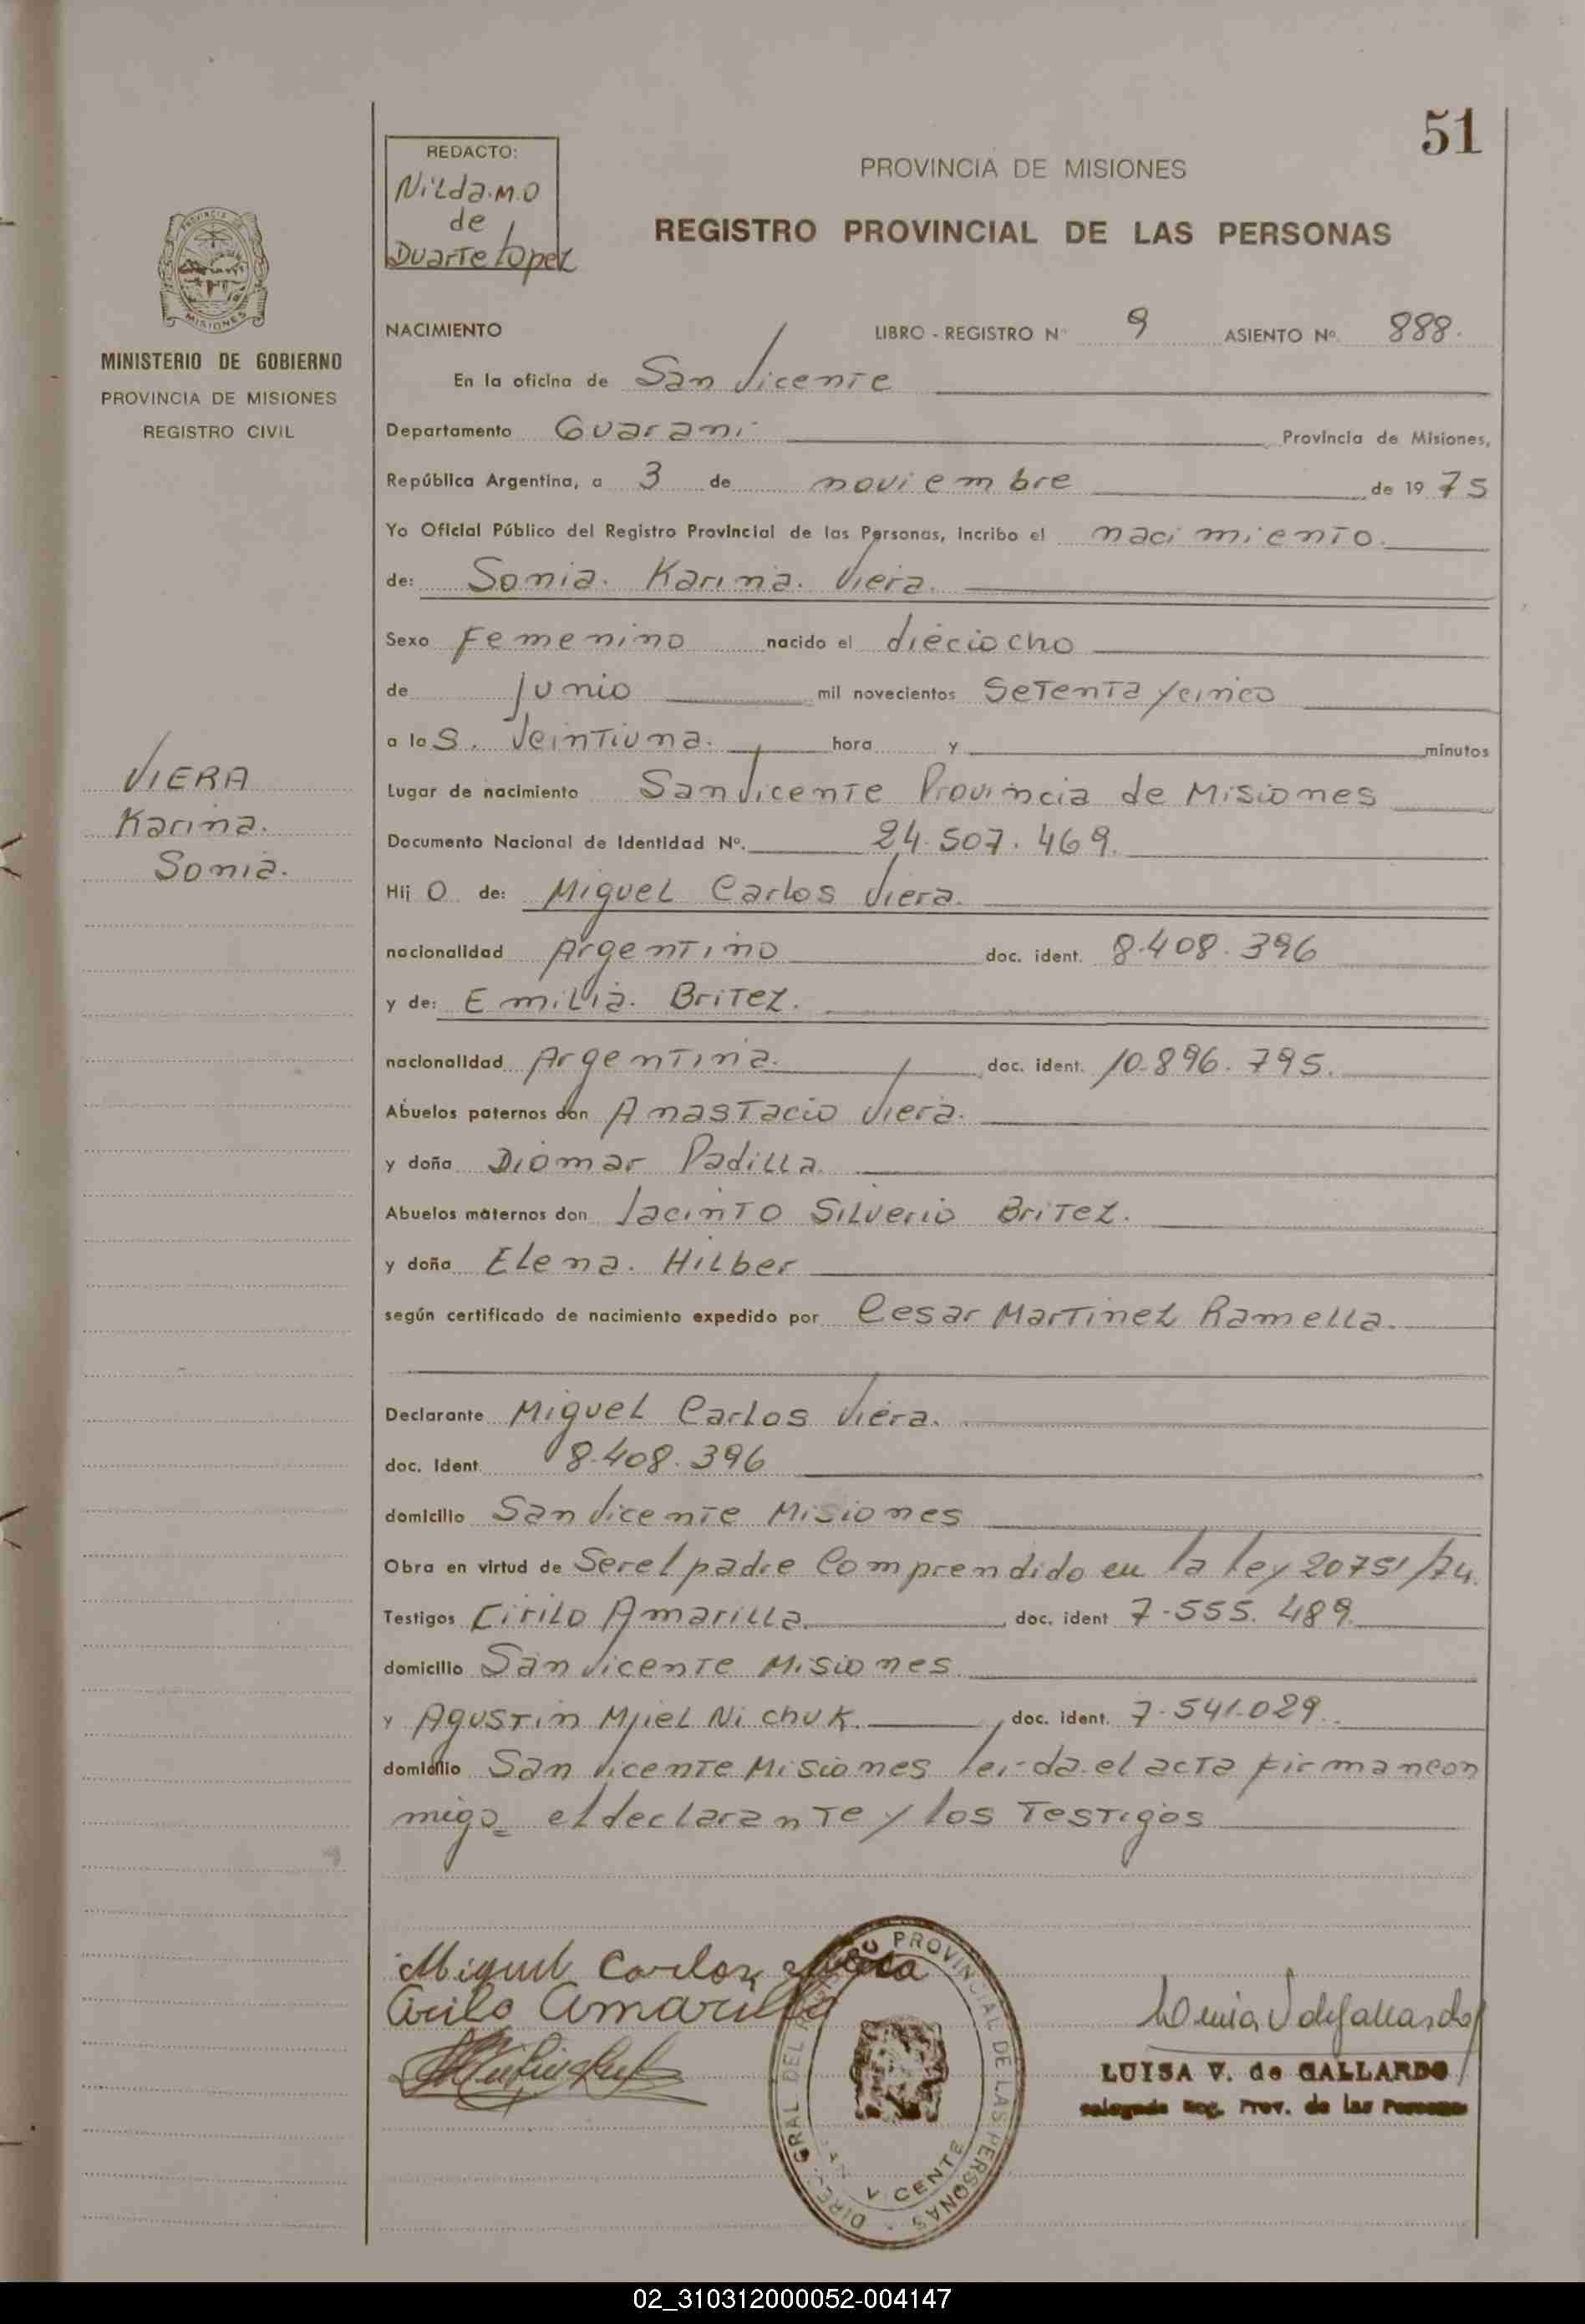 51
REDACTO:
Nilda.M.O
de
Duarte Lopez
PROVINCIA DE MISIONES
REGISTRO PROVINCIAL DE LAS PERSONAS
MISIONES
MINISTERIO DE GOBIERNO
PROVINCIA DE MISIONES
REGISTRO CIVIL
NACIMIENTO LIBRO - REGISTRO Nº 9 ASIENTO Nº. 888.
En la oficina de San Vicente
Departamento Guarani Provincia de Misiones,
República Argentina, a 3 de noviembre de 1975
Yo Oficial Público del Registro Provincial de las Personas, incribo el nacimiento.
de: Sonia. Karina. Viera.
Sexo Femenino nacido el dieciocho
de junio mil novecientos Setenta y cinco
a las. Veintiuna. hora y minutos
VIERA
Karina.
Sonia.
Lugar de nacimiento San Vicente Provincia de Misiones
Documento Nacional de Identidad Nº. 24.507.469.
Hij O de: Miguel Carlos Viera.
nacionalidad Argentino doc. ident. 8.408.396
y de: Emilia. Britez.
nacionalidad Argentina. doc. ident. 10.896.795.
Abuelos paternos don Anastacio Viera.
y doña Diomar Padilla.
Abuelos maternos don Jacinto Silverio Britez.
y doña Elena. Hilber
según certificado de nacimiento expedido por Cesar Martinez Ramella.
Declarante Miguel Carlos Viera.
doc. Ident. 8.408.396
domicilio San Vicente Misiones
Obra en virtud de Ser el padre Comprendido en la ley 20751/74.
Testigos Cirilo Amarilla. doc. ident 7.555.489.
domicilio San Vicente Misiones
y Agustin Mjiel Nichuk. doc. ident. 7.541.029.
domicilio San Vicente Misiones leida el acta firman con
migo el declarante y los Testigos
Miguel Carlos Viera
Cirilo Amarilla
DIREC. GRAL DEL REGISTRO PROVINCIAL DE LAS PERSONAS
SAN VICENTE
LUISA V. de GALLARDO
Delegada Reg. Prov. de las Personas
02_310312000052-004147